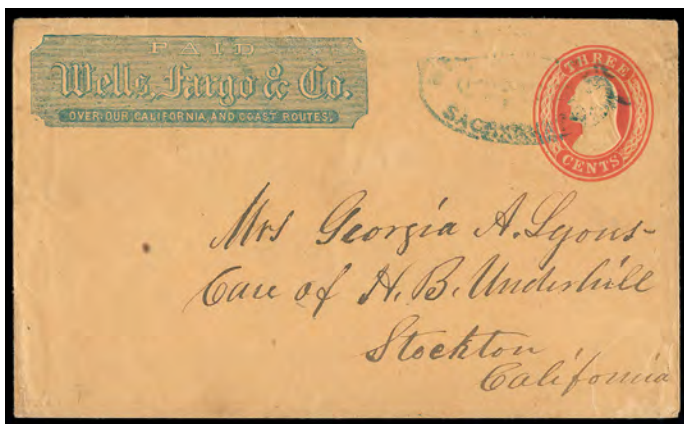 PAID
Wells, Fargo & Co.
OVER OUR CALIFORNIA AND COAST ROUTES.
THREE
CENTS
Mrs Georgia A. Lyons-
Care of H. B. Underhill
Stockton
California